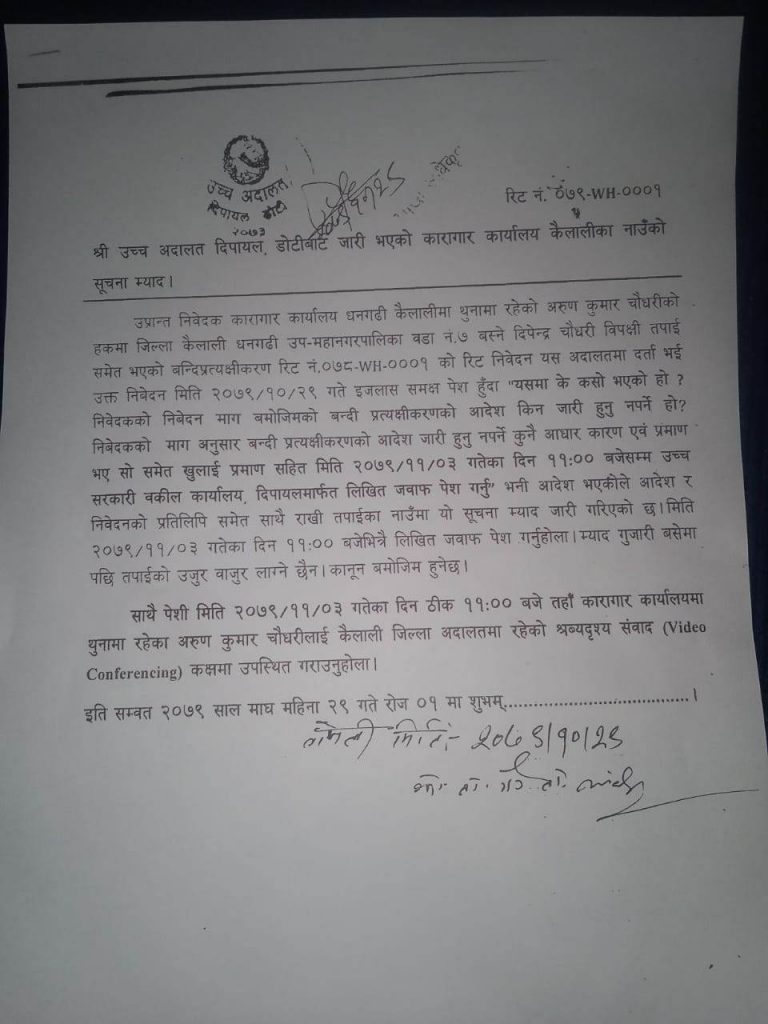 उच्च अदालत
दिपायल डोटी
२०७३
रिट नं. ०७९-WH-०००१
श्री उच्च अदालत दिपायल, डोटीबाट जारी भएको कारागार कार्यालय कैलालीका नाउँको
सूचना म्याद।
उप्रान्त निवेदक कारागार कार्यालय धनगढी कैलालीमा थुनामा रहेको अरुण कुमार चौधरीको
हकमा जिल्ला कैलाली धनगढी उप-महानगरपालिका वडा नं.७ बस्ने दिपेन्द्र चौधरी विपक्षी तपाई
समेत भएको बन्दिप्रत्यक्षीकरण रिट नं.०७९-WH-०००१ को रिट निवेदन यस अदालतमा दर्ता भई
उक्त निबेदन मिति २०७९/१०/२९ गते इजलास समक्ष पेश हुँदा "यसमा के कसो भएको हो ?
निवेदकको निबेदन माग बमोजिमको बन्दी प्रत्यक्षीकरणको आदेश किन जारी हुनु नपर्ने हो?
निबेदकको माग अनुसार बन्दी प्रत्यक्षीकरणको आदेश जारी हुनु नपर्ने कुनै आधार कारण एवं प्रमाण
भए सो समेत खुलाई प्रमाण सहित मिति २०७९/११/०३ गतेका दिन ११:०० बजेसम्म उच्च
सरकारी वकील कार्यालय, दिपायलमार्फत लिखित जवाफ पेश गर्नु" भनी आदेश भएकीले आदेश र
निवेदनको प्रतिलिपि समेत साथै राखी तपाईका नाउँमा यो सूचना म्याद जारी गरिएको छ।मिति
२०७९/११/०३ गतेका दिन ११:०० बजेभित्रै लिखित जवाफ पेश गर्नुहोला।म्याद गुजारी बसेमा
पछि तपाईको उजुर वाजुर लाग्ने छैन।कानून बमोजिम हुनेछ।
साथै पेशी मिति २०७९/११/०३ गतेका दिन ठीक ११:०० बजे तहाँ कारागार कार्यालयमा
थुनामा रहेका अरुण कुमार चौधरीलाई कैलाली जिल्ला अदालतमा रहेको श्रब्यदृश्य संवाद (Video
Conferencing) कक्षमा उपस्थित गराउनुहोला।
इति सम्वत २०७९ साल माघ महिना २९ गते रोज ०१ मा शुभम्.....................................।
मिति:- २०७९/१०/२९